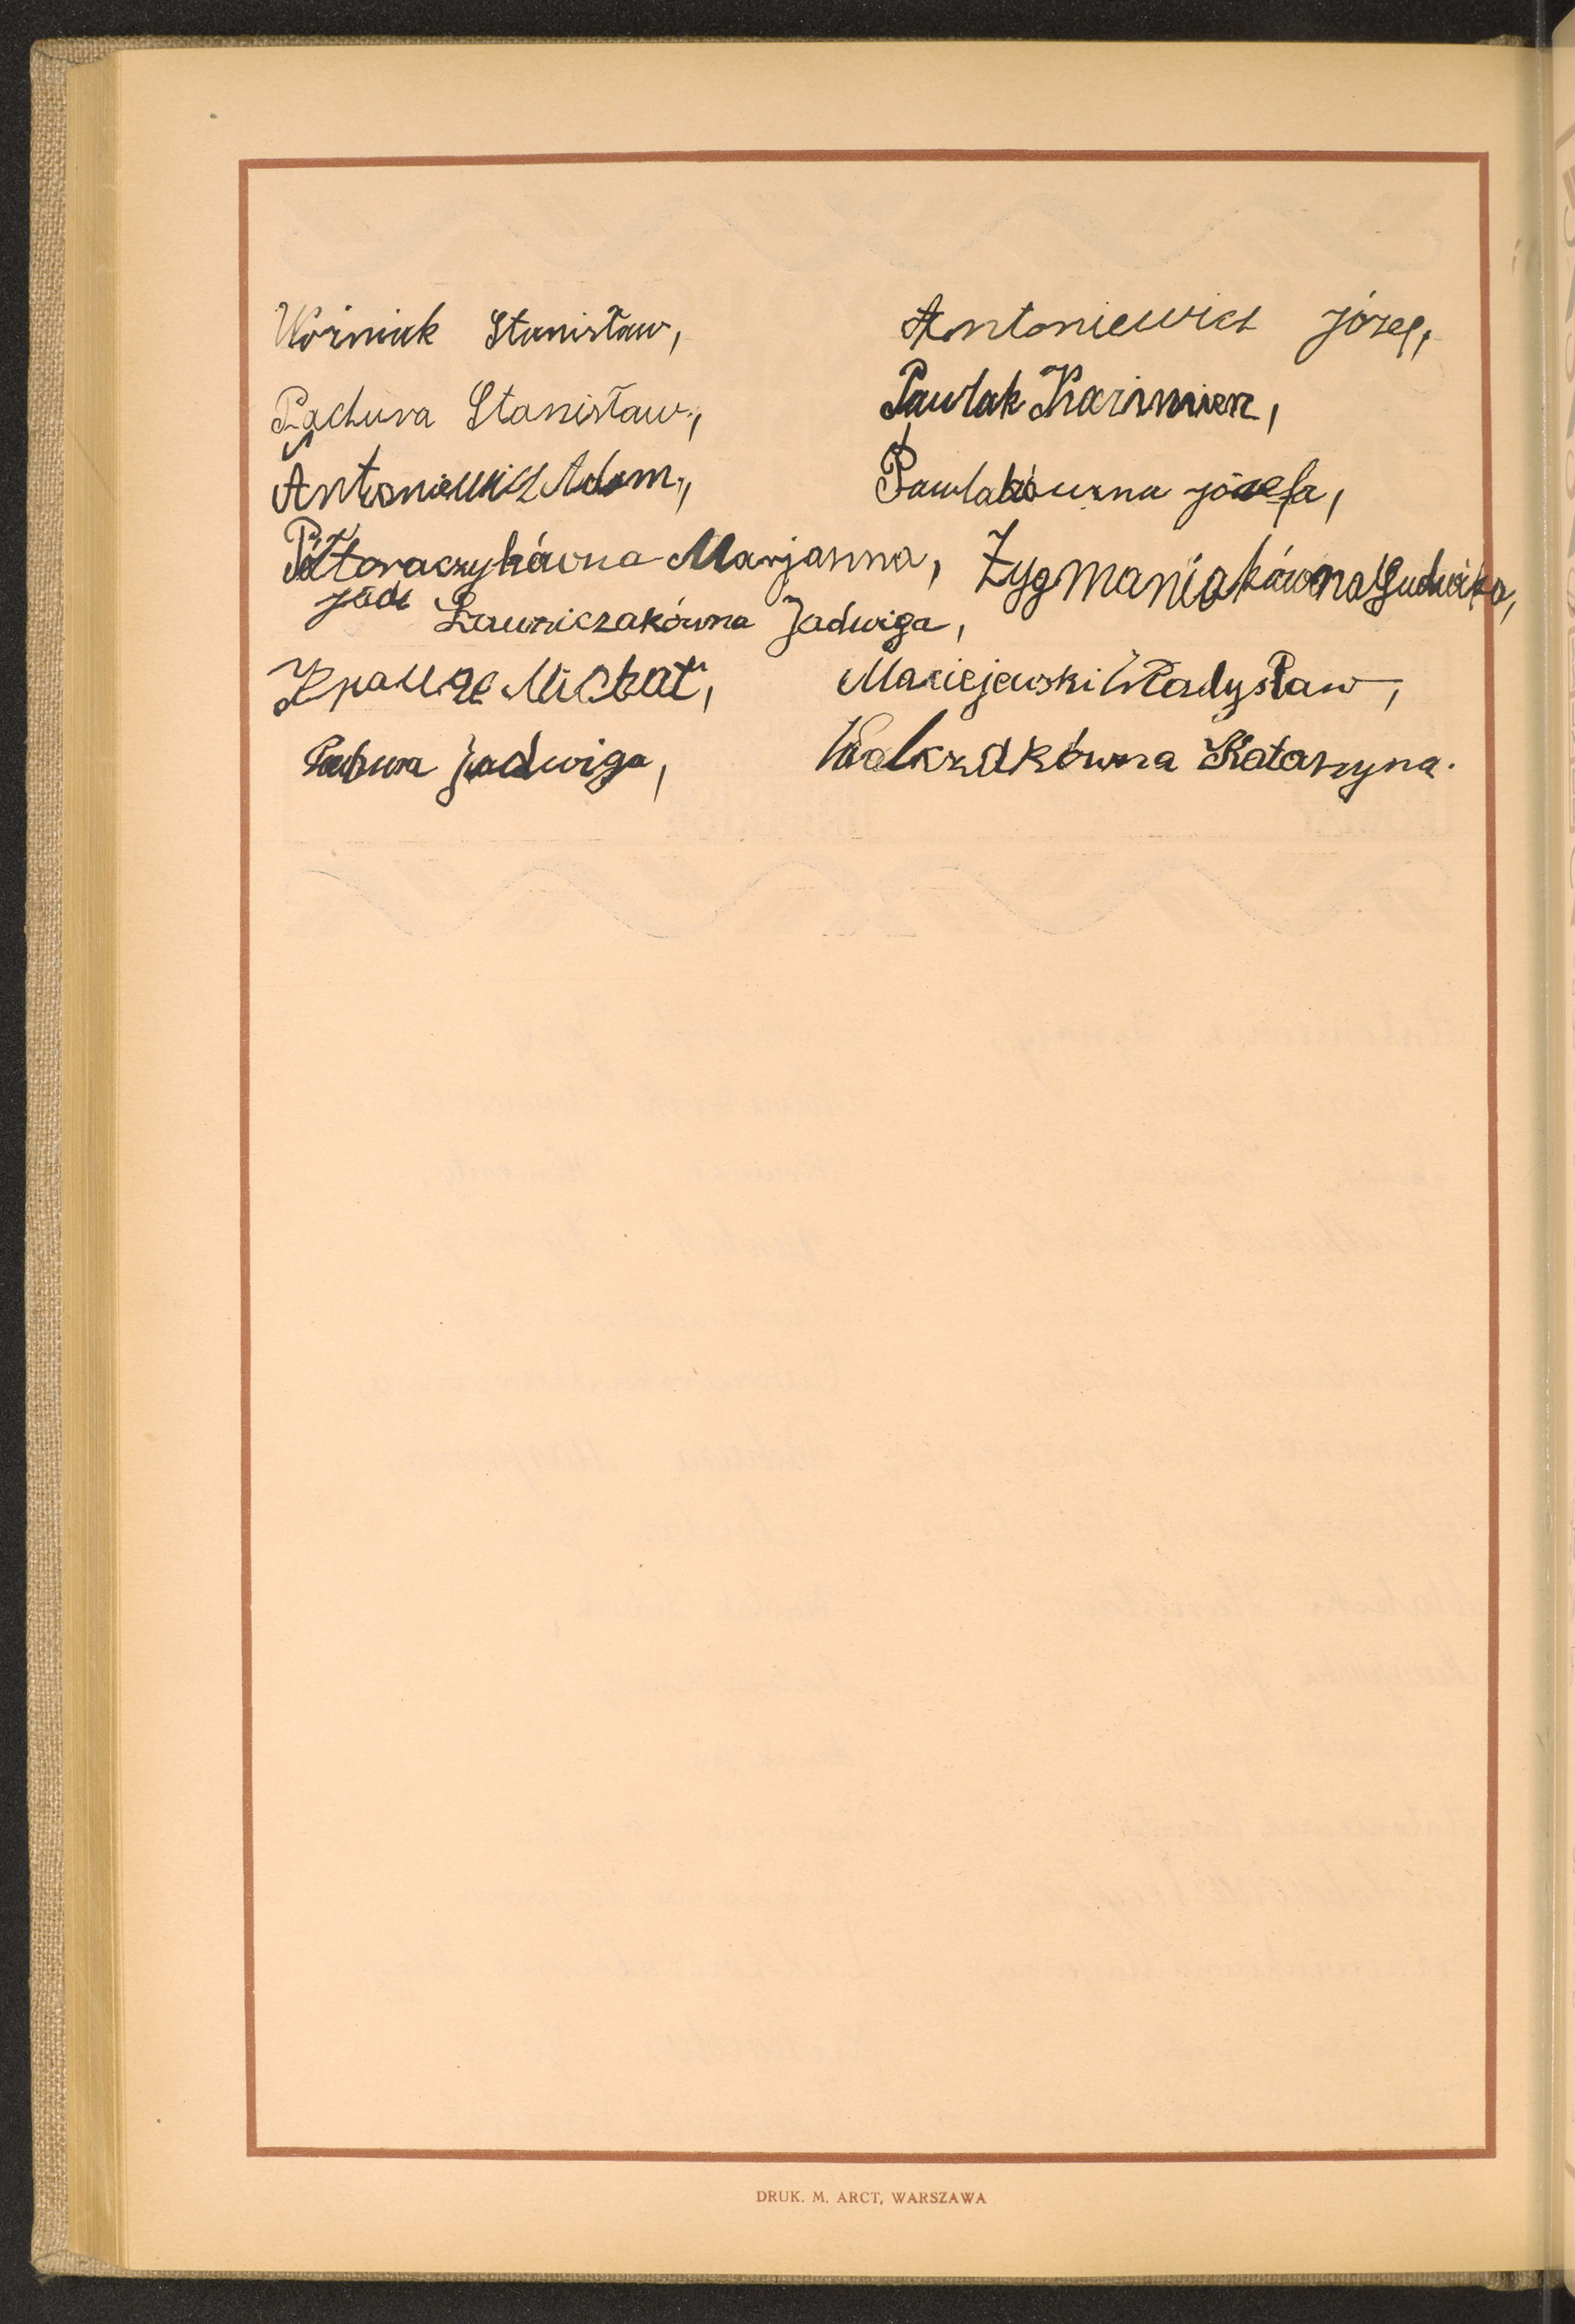 Woźniak Stanisław, Antoniewicz Józef,
Pachura Stanisław, Pawlak Kazimierz,
Antoniewicz Adam, Pawlakówna Józefa,
Półtoraczykówna Marjanna, Zygmaniakówna Ludwika,
Ławniczakówna Jadwiga,
Michał, Maciejewski Władysław,
Pachura Jadwiga, Walczakówna Katarzyna.
DRUK. M. ARCT, WARSZAWA